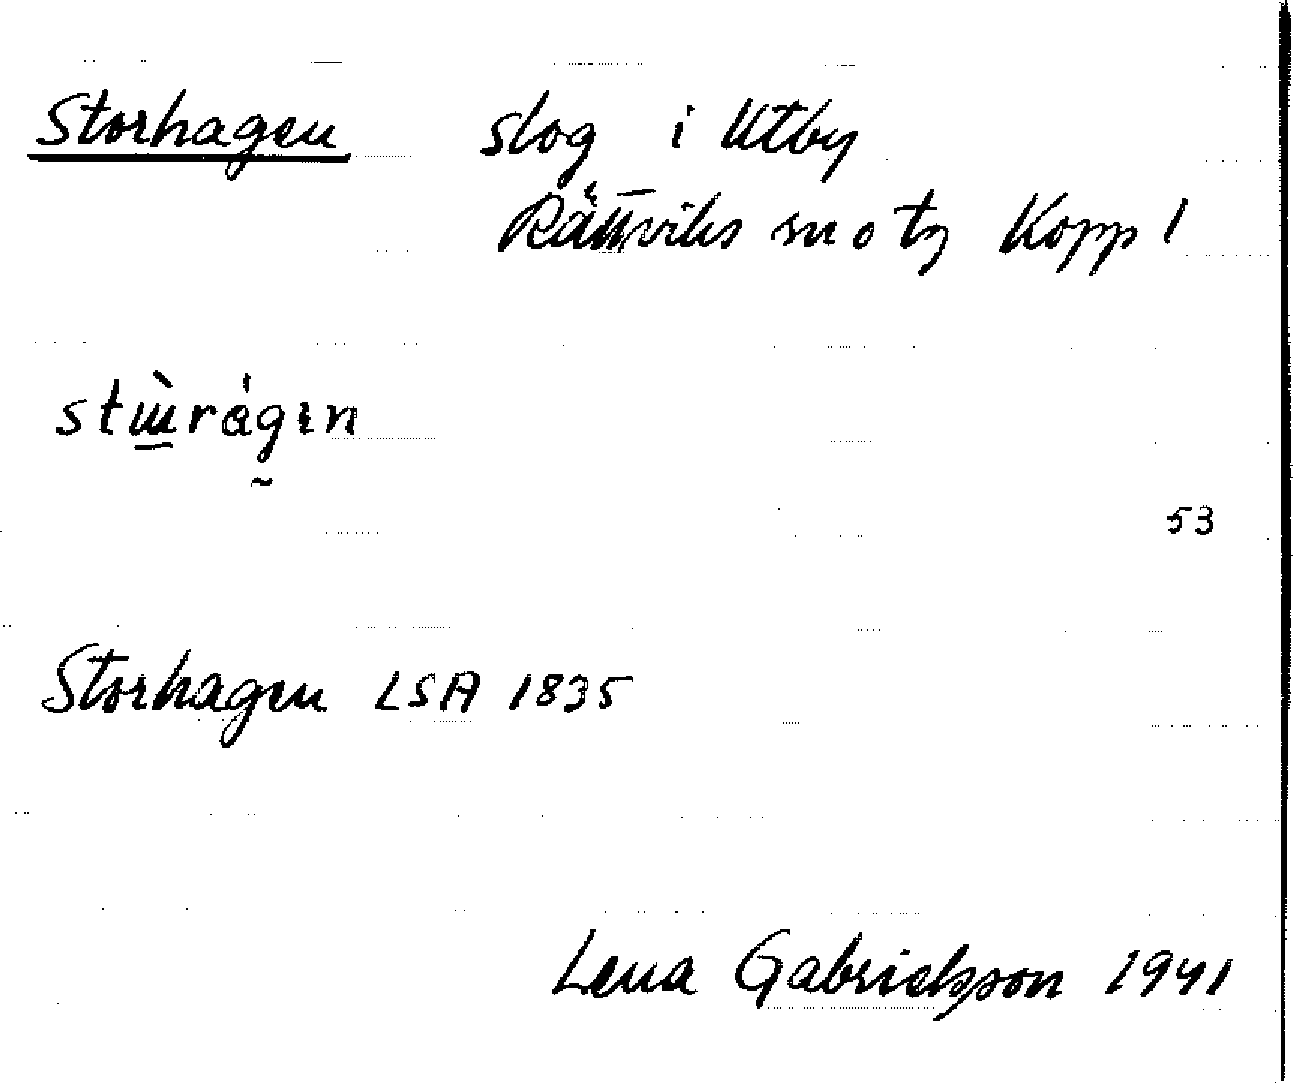 Storhagen slog i Utby
Rättviks sn o tg Kopp l
stɯ̀rágın
53
Storhagen LSA 1835
Lena Gabrielsson 1941